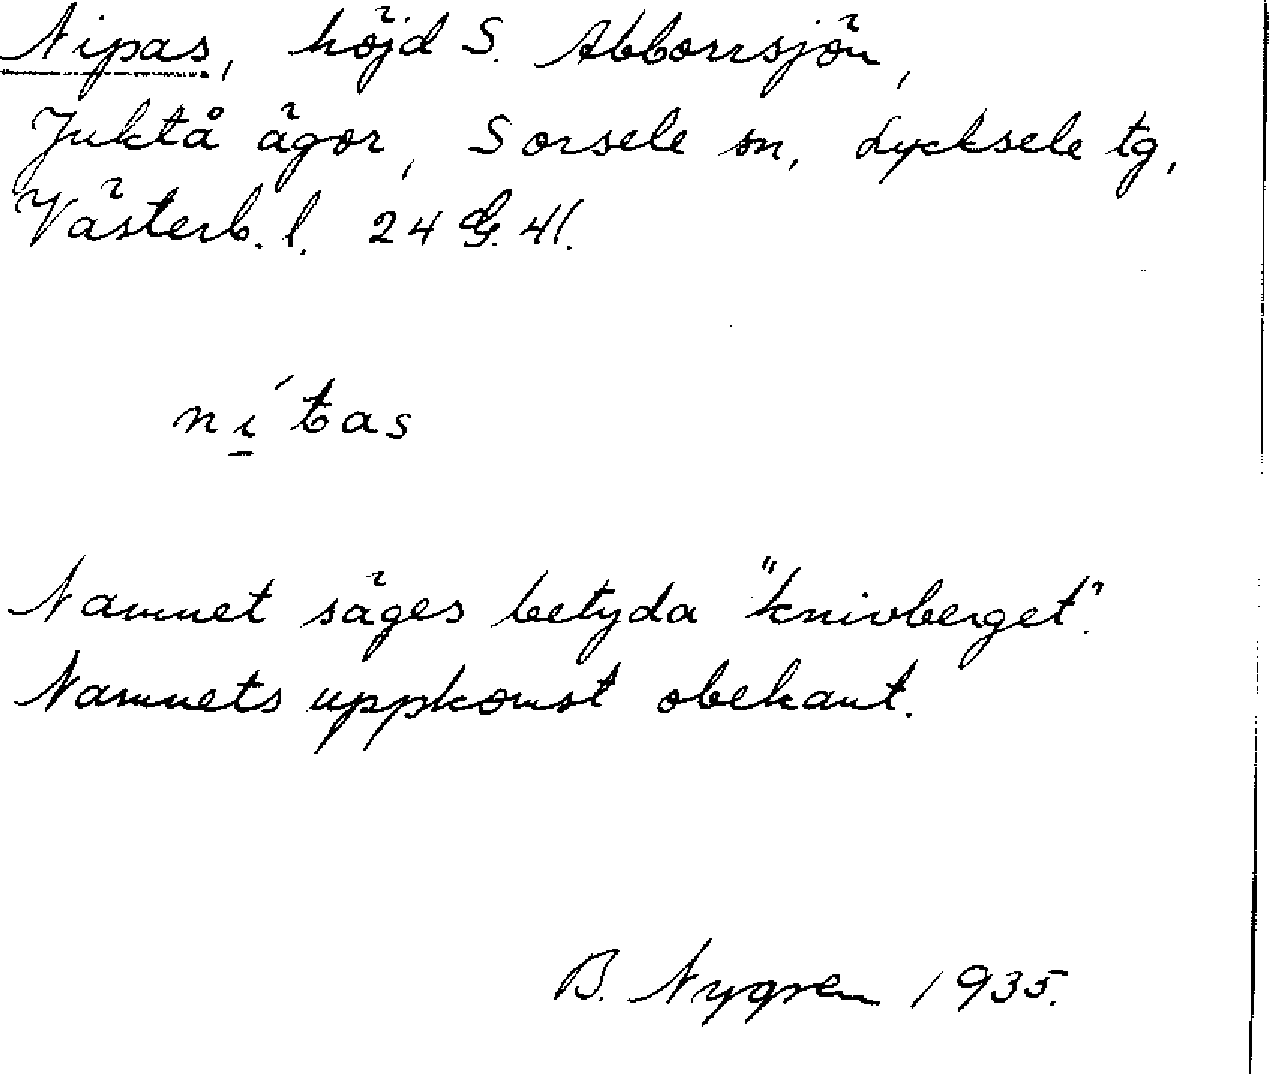 Nipas, höjd S. Abborrsjön,
Juktå ägor, Sorsele sn, Lycksele tg,
Västerb. l. 24 G. 41.
ní̱tas
Namnet säges betyda "knivberget".
Namnets uppkomst obekant.
B. Nygren 1935.